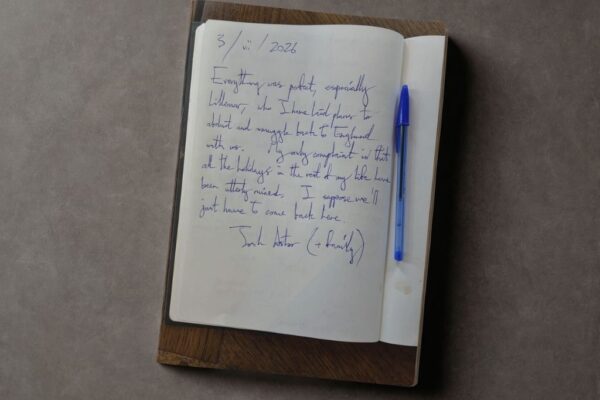 3/vii/2026
Everything was perfect, especially
who I have laid plans to
abduct and smuggle back to England
with us. My only complaint is that
all the holidays in the rest of my life have
been utterly ruined. I suppose we'll
just have to come back here.
Josh (+ family)